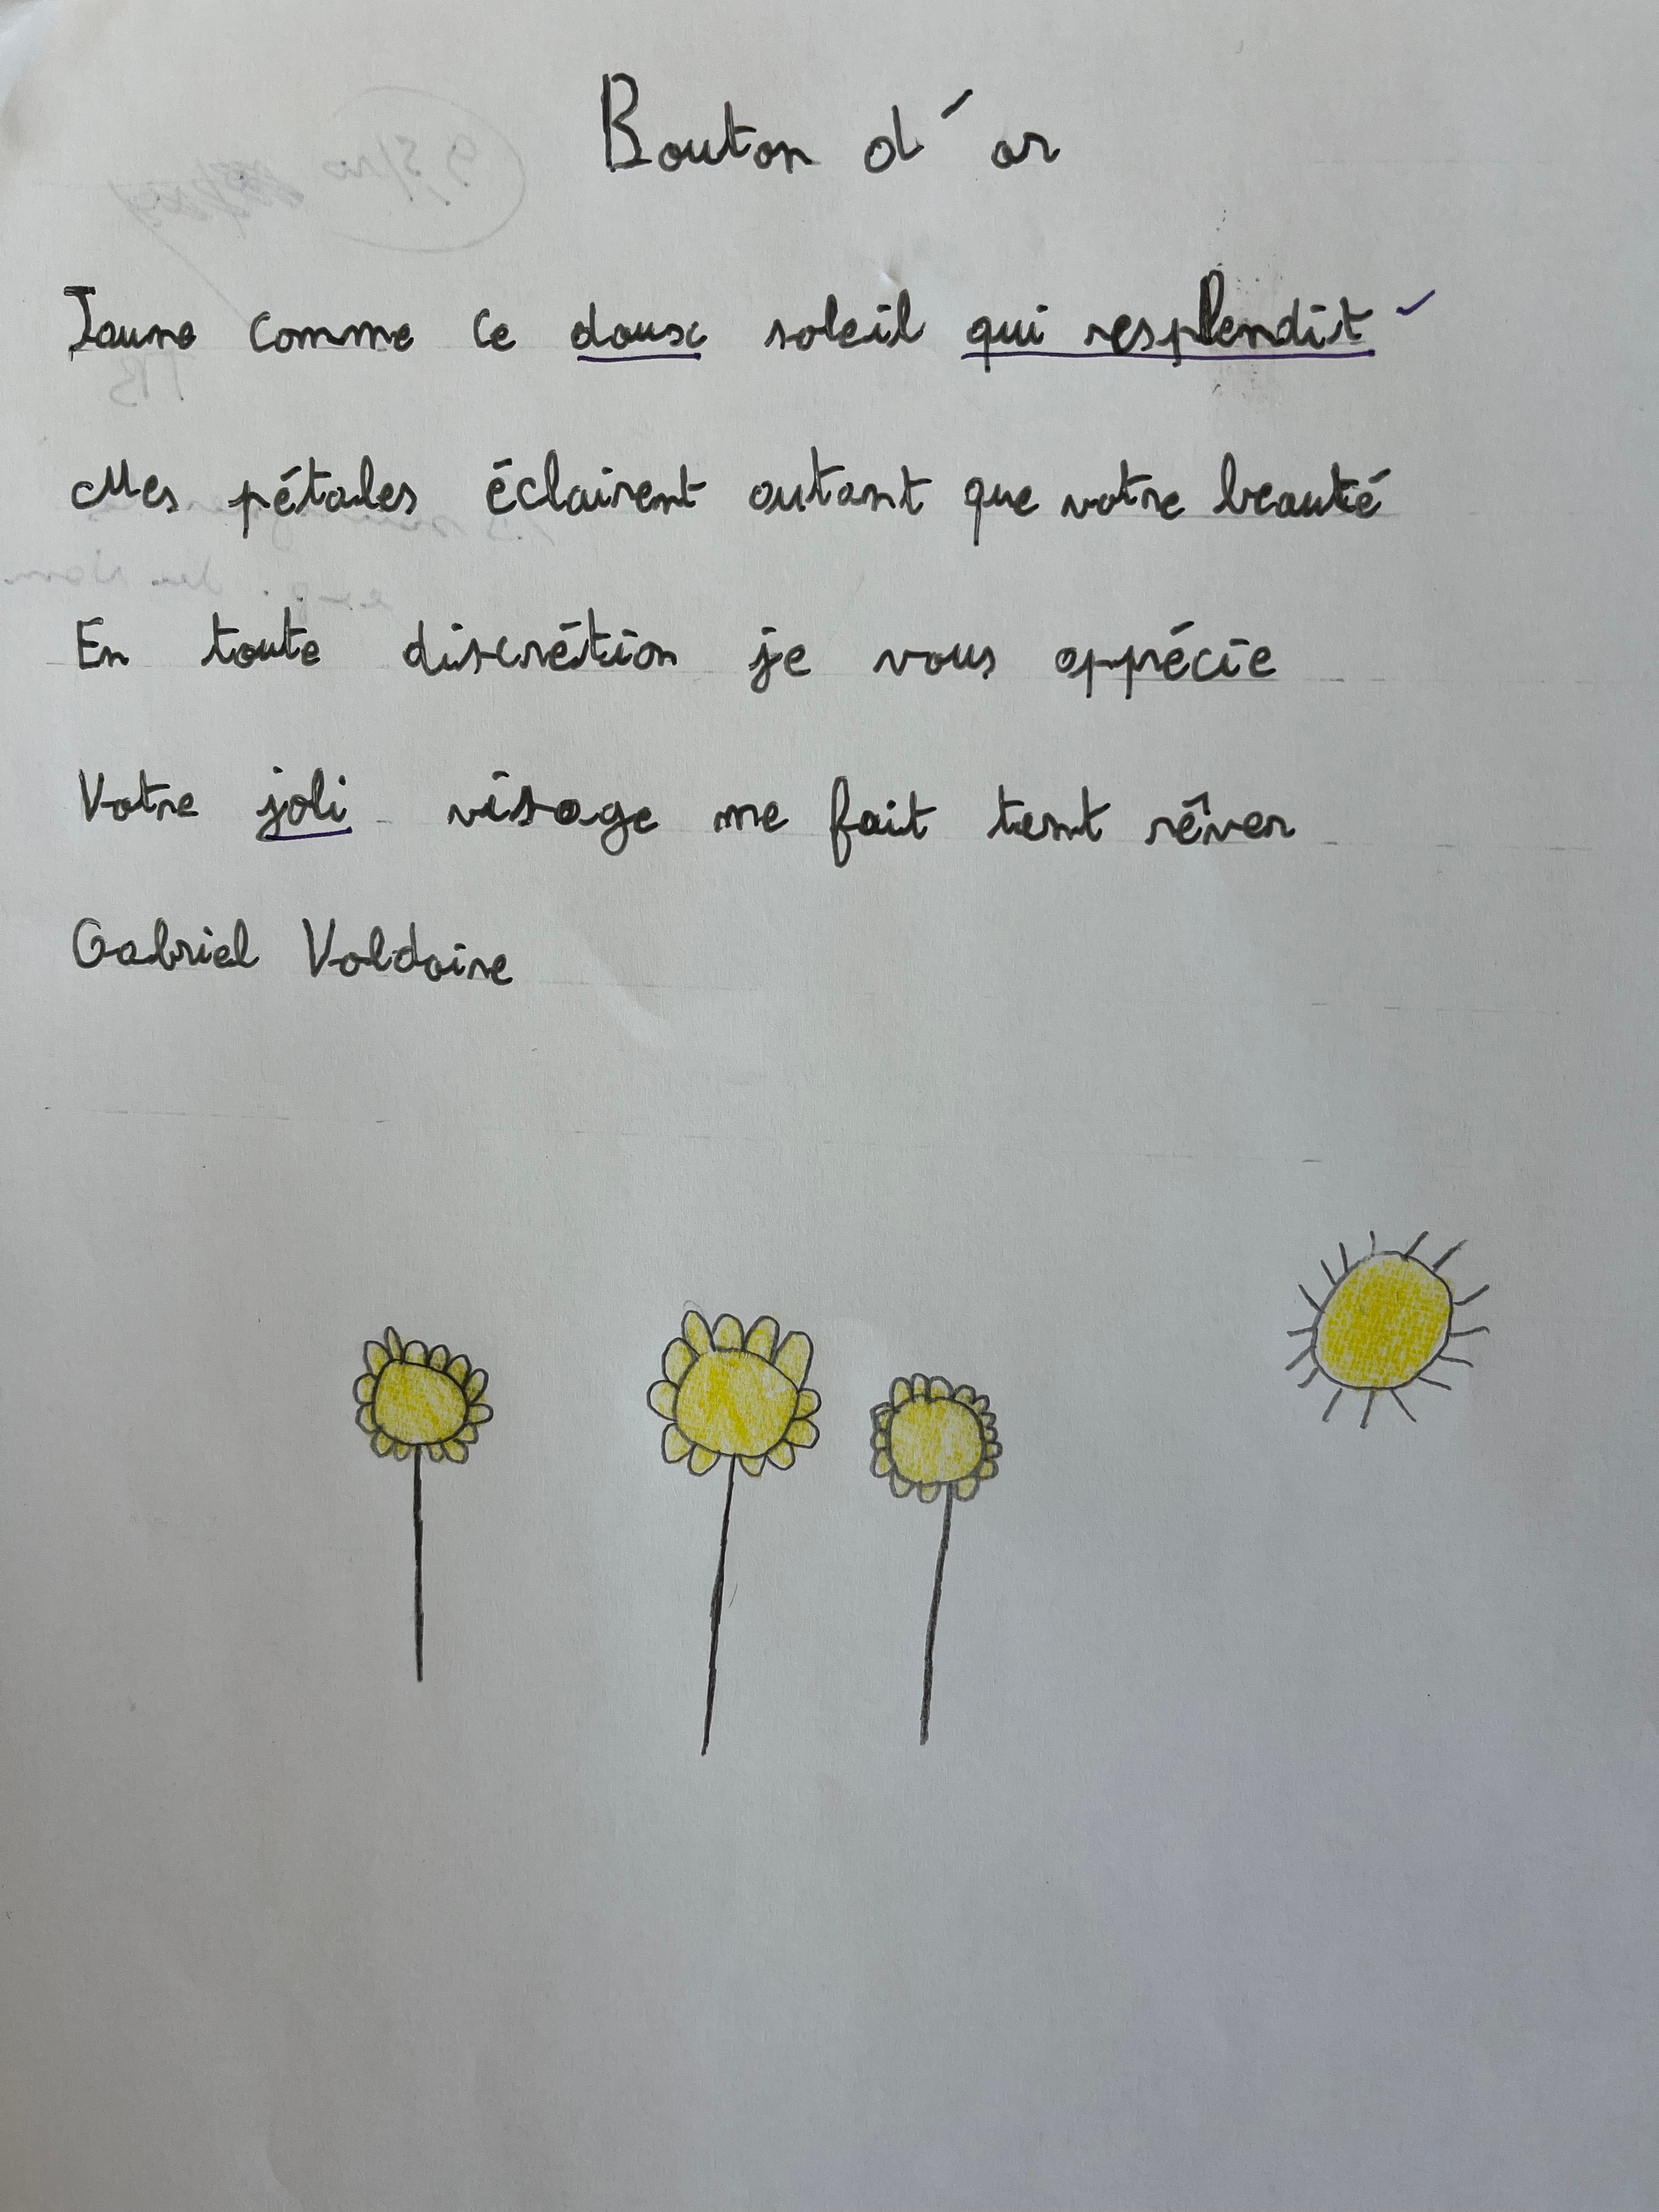 Bouton d'or
Jaune comme ce doux soleil qui resplendit
Mes pétales éclairent autant que votre beauté
En toute discrétion je vous apprécie
Votre joli visage me fait tant rêver
Gabriel Valdaire
9,5/10
TB
exp. du Nom